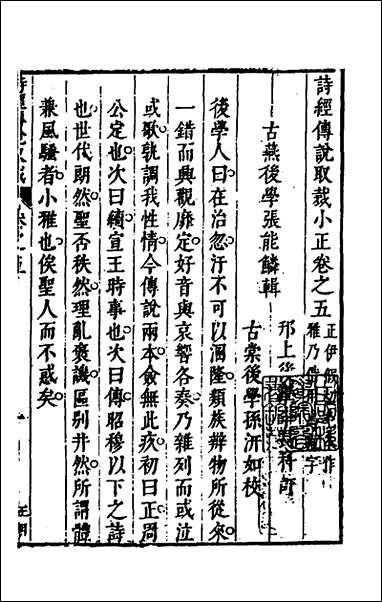 詩經傳說取裁小正卷之五
古燕後學張能鱗輯
邗上
古棠後學孫汧如校
後學人曰在治忽汙不可以溷隆類族辨物所從來
一錯而興觀靡定好音與哀響各奏乃雜列而或泣
或歌孰調我性情今傳說兩本僉無此疚初曰正周
公定也次曰續宣王時事也次曰傳昭穆以下之詩
也世代朗然聖否秩然理亂褒譏區別井然所謂體
兼風騷者小雅也俟聖人而不惑矣